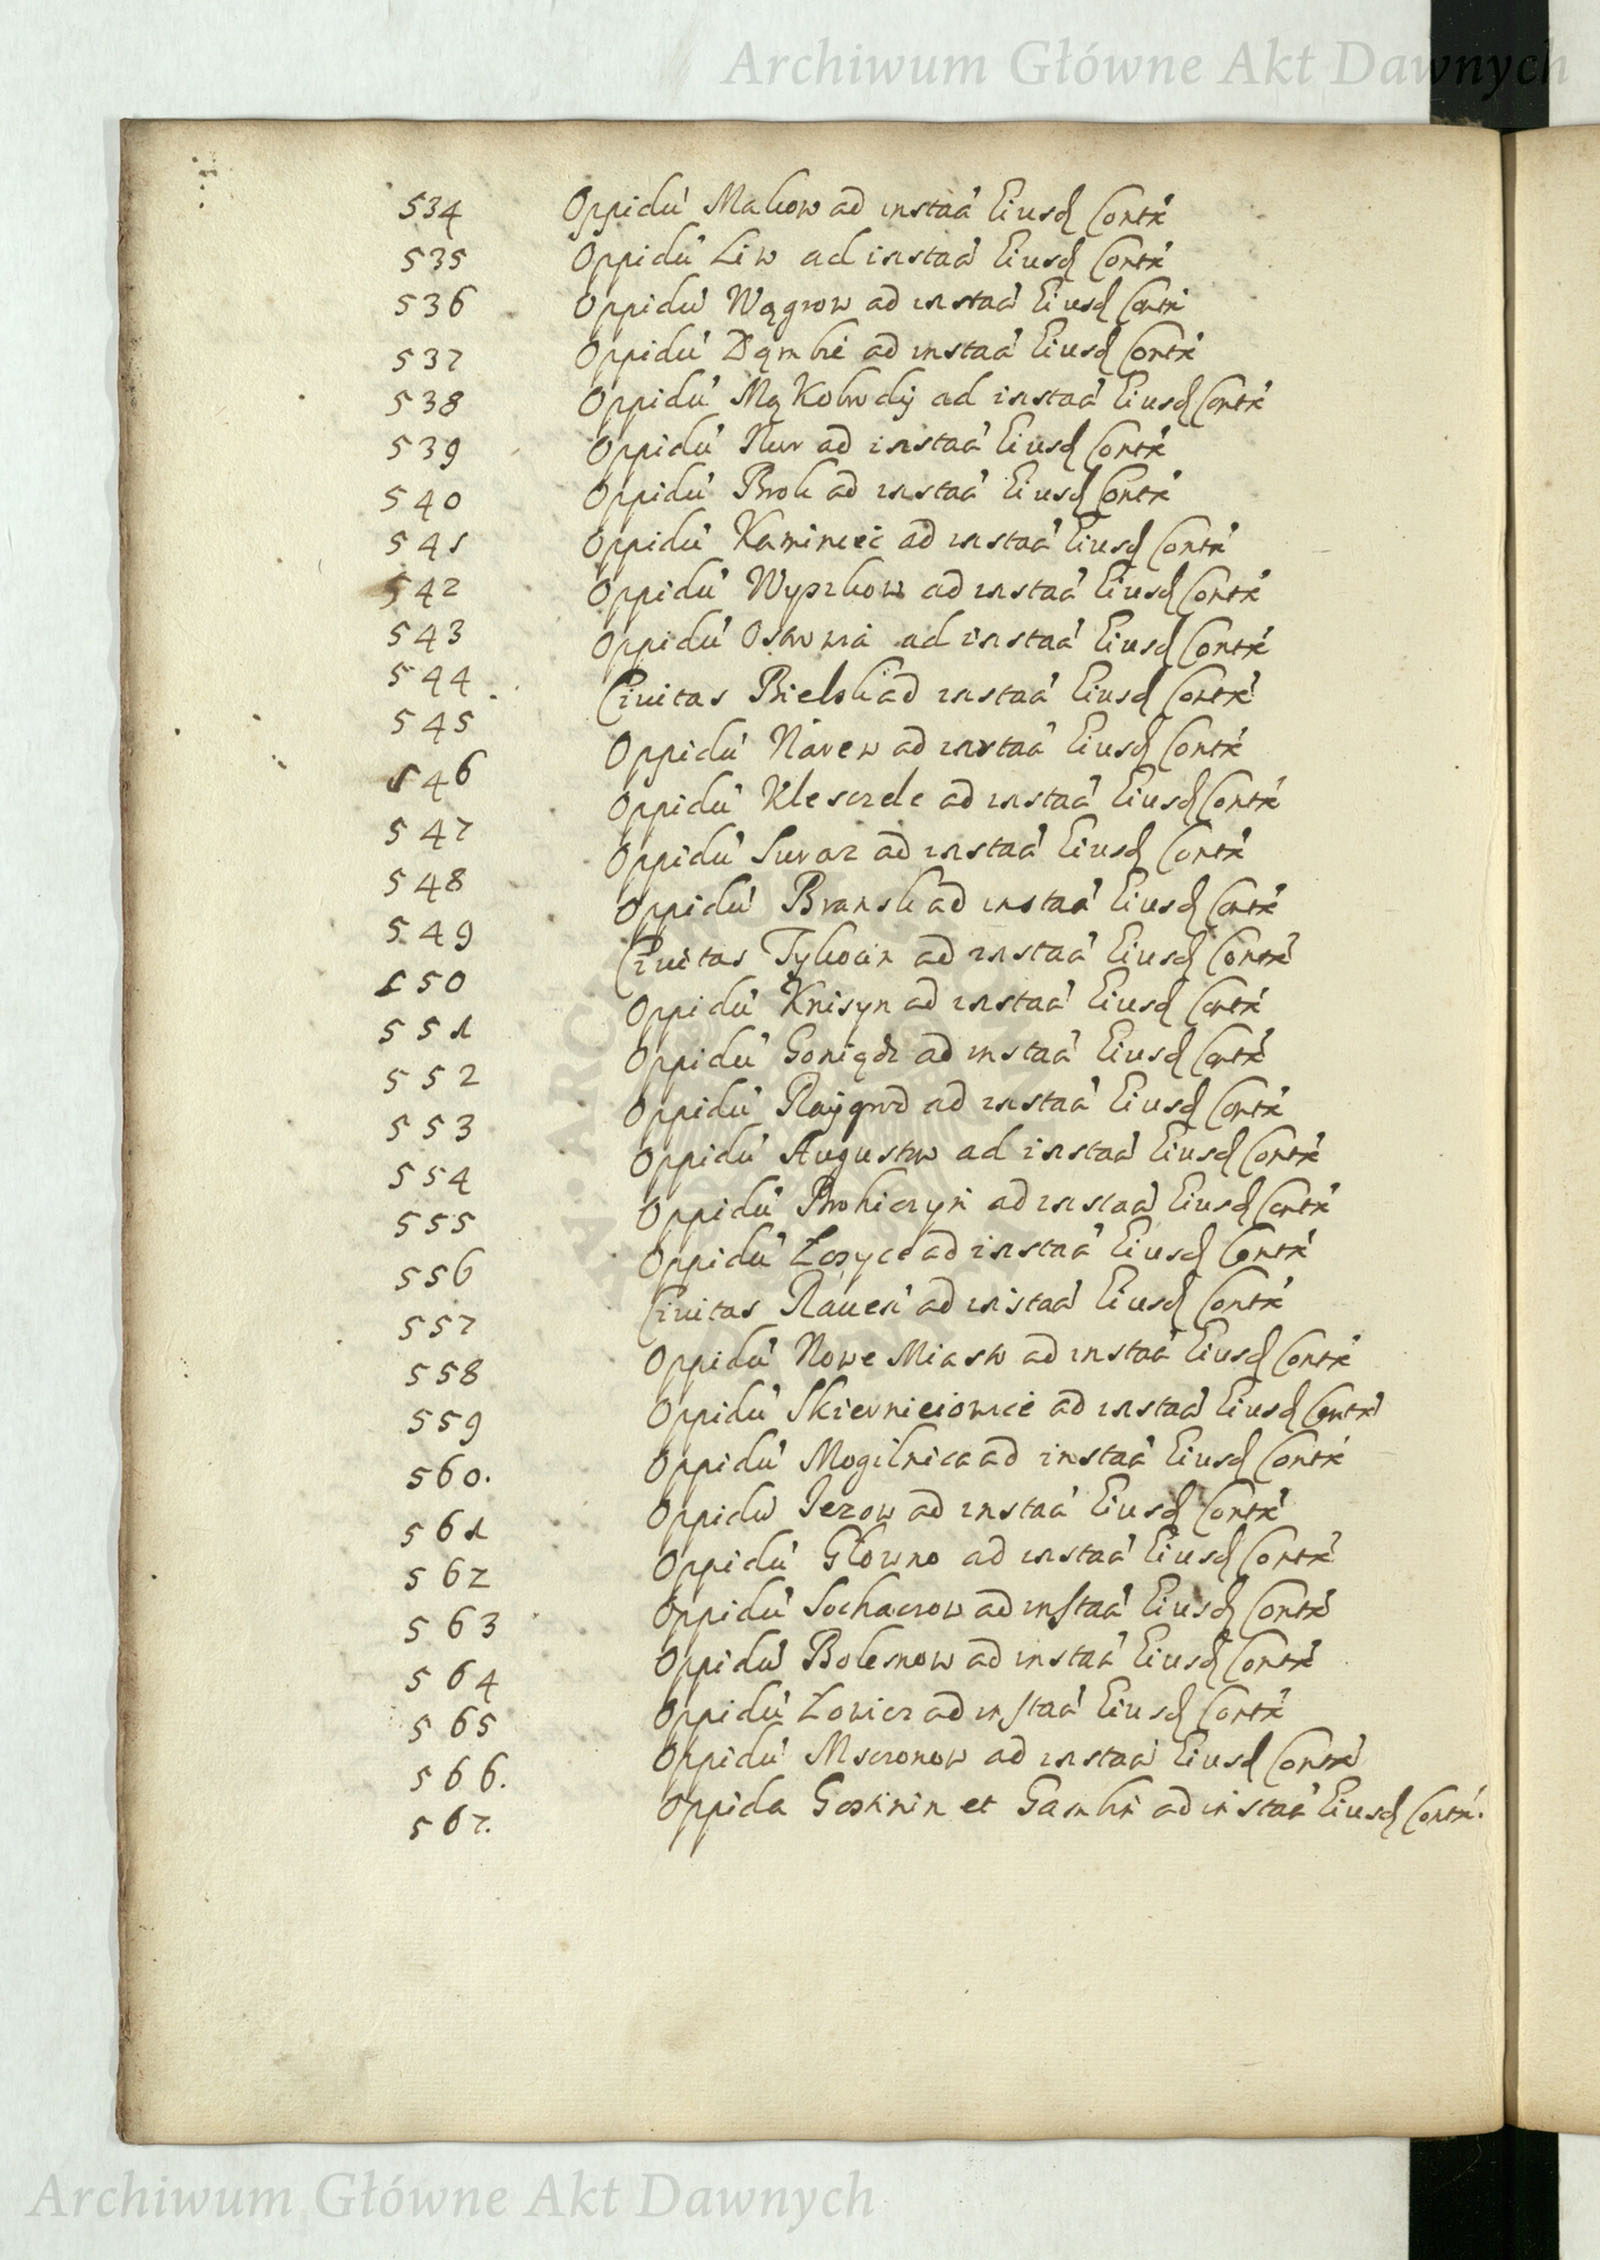 Archiwum Główne Akt Dawnych
534 Oppidu' Makow ad instaa' Eiusd Contr'
535 Oppidu' Liw ad instaa' Eiusd Contr'
536 Oppidu' Wągrow ad instaa' Eiusd Contr'
537 Oppidu' Dąmbe ad instaa' Eiusd Contr'
538 Oppidu' Mąkobody ad instaa' Eiusd Contr'
539 Oppidu' Nur ad instaa' Eiusd Contr'
540 Oppidu' Brok ad instaa' Eiusd Contr'
541 Oppidu' Kaminiec ad instaa' Eiusd Contr'
542 Oppidu' Wyszkow ad instaa' Eiusd Contr'
543 Oppidu' ad instaa' Eiusd Contr'
544 Civitas Bielsk ad instaa' Eiusd Contr'
545 Oppidu' Narew ad instaa' Eiusd Contr'
546 Oppidu' Klesczele ad instaa' Eiusd Contr'
547 Oppidu' Suraz ad instaa' Eiusd Contr'
548 Oppidu' Bransk ad instaa' Eiusd Contr'
549 Civitas Tykocin ad instaa' Eiusd Contr'
550 Oppidu' Knisyn ad instaa' Eiusd Contr'
551 Oppidu' Goniądz ad instaa' Eiusd Contr'
552 Oppidu' Raygrod ad instaa' Eiusd Contr'
553 Oppidu' Augustow ad instaa' Eiusd Contr'
554 Oppidu' Drohiczyn ad instaa' Eiusd Contr'
555 Oppidu' Łosyce ad instaa' Eiusd Contr'
556 Civitas Raven' ad instaa' Eiusd Contr'
557 Oppidu' Nowe Miasto ad instaa' Eiusd Contr'
558 Oppidu' Skierniewice ad instaa' Eiusd Contr'
559 Oppidu' Mogilnica ad instaa' Eiusd Contr'
560. Oppidu' Jezow ad instaa' Eiusd Contr'
561 Oppidu' Głowno ad instaa' Eiusd Contr'
562 Oppidu' Sochaczow ad instaa' Eiusd Contr'
563 Oppidu' Bolemow ad instaa' Eiusd Contr'
564 Oppidu' Łowicz ad instaa' Eiusd Contr'
565 Oppidu' Msczonow ad instaa' Eiusd Contr'
566. Oppida Gostinin et Gambin ad instaa' Eiusd Contr'.
567.
Archiwum Główne Akt Dawnych